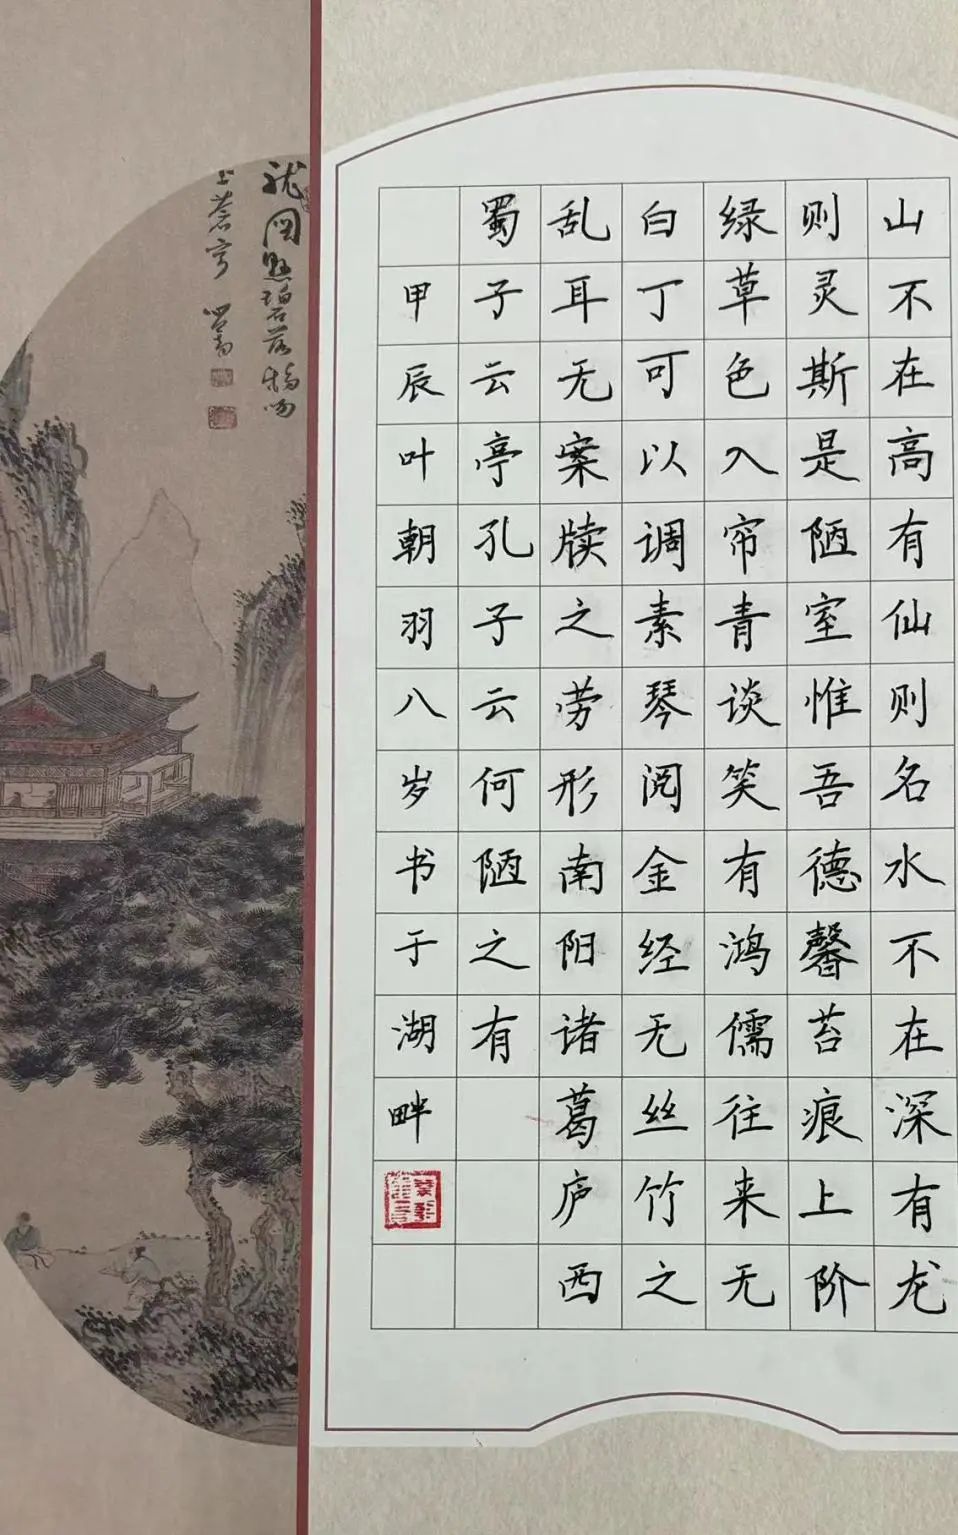 山不在高有仙则名水不在深有龙
则灵斯是陋室惟吾德馨苔痕上阶
绿草色入帘青谈笑有鸿儒往来无
白丁可以调素琴阅金经无丝竹之
乱耳无案牍之劳形南阳诸葛庐西
蜀子云亭孔子云何陋之有
甲辰叶朝羽八岁书于湖畔
碧落
上蒼穹